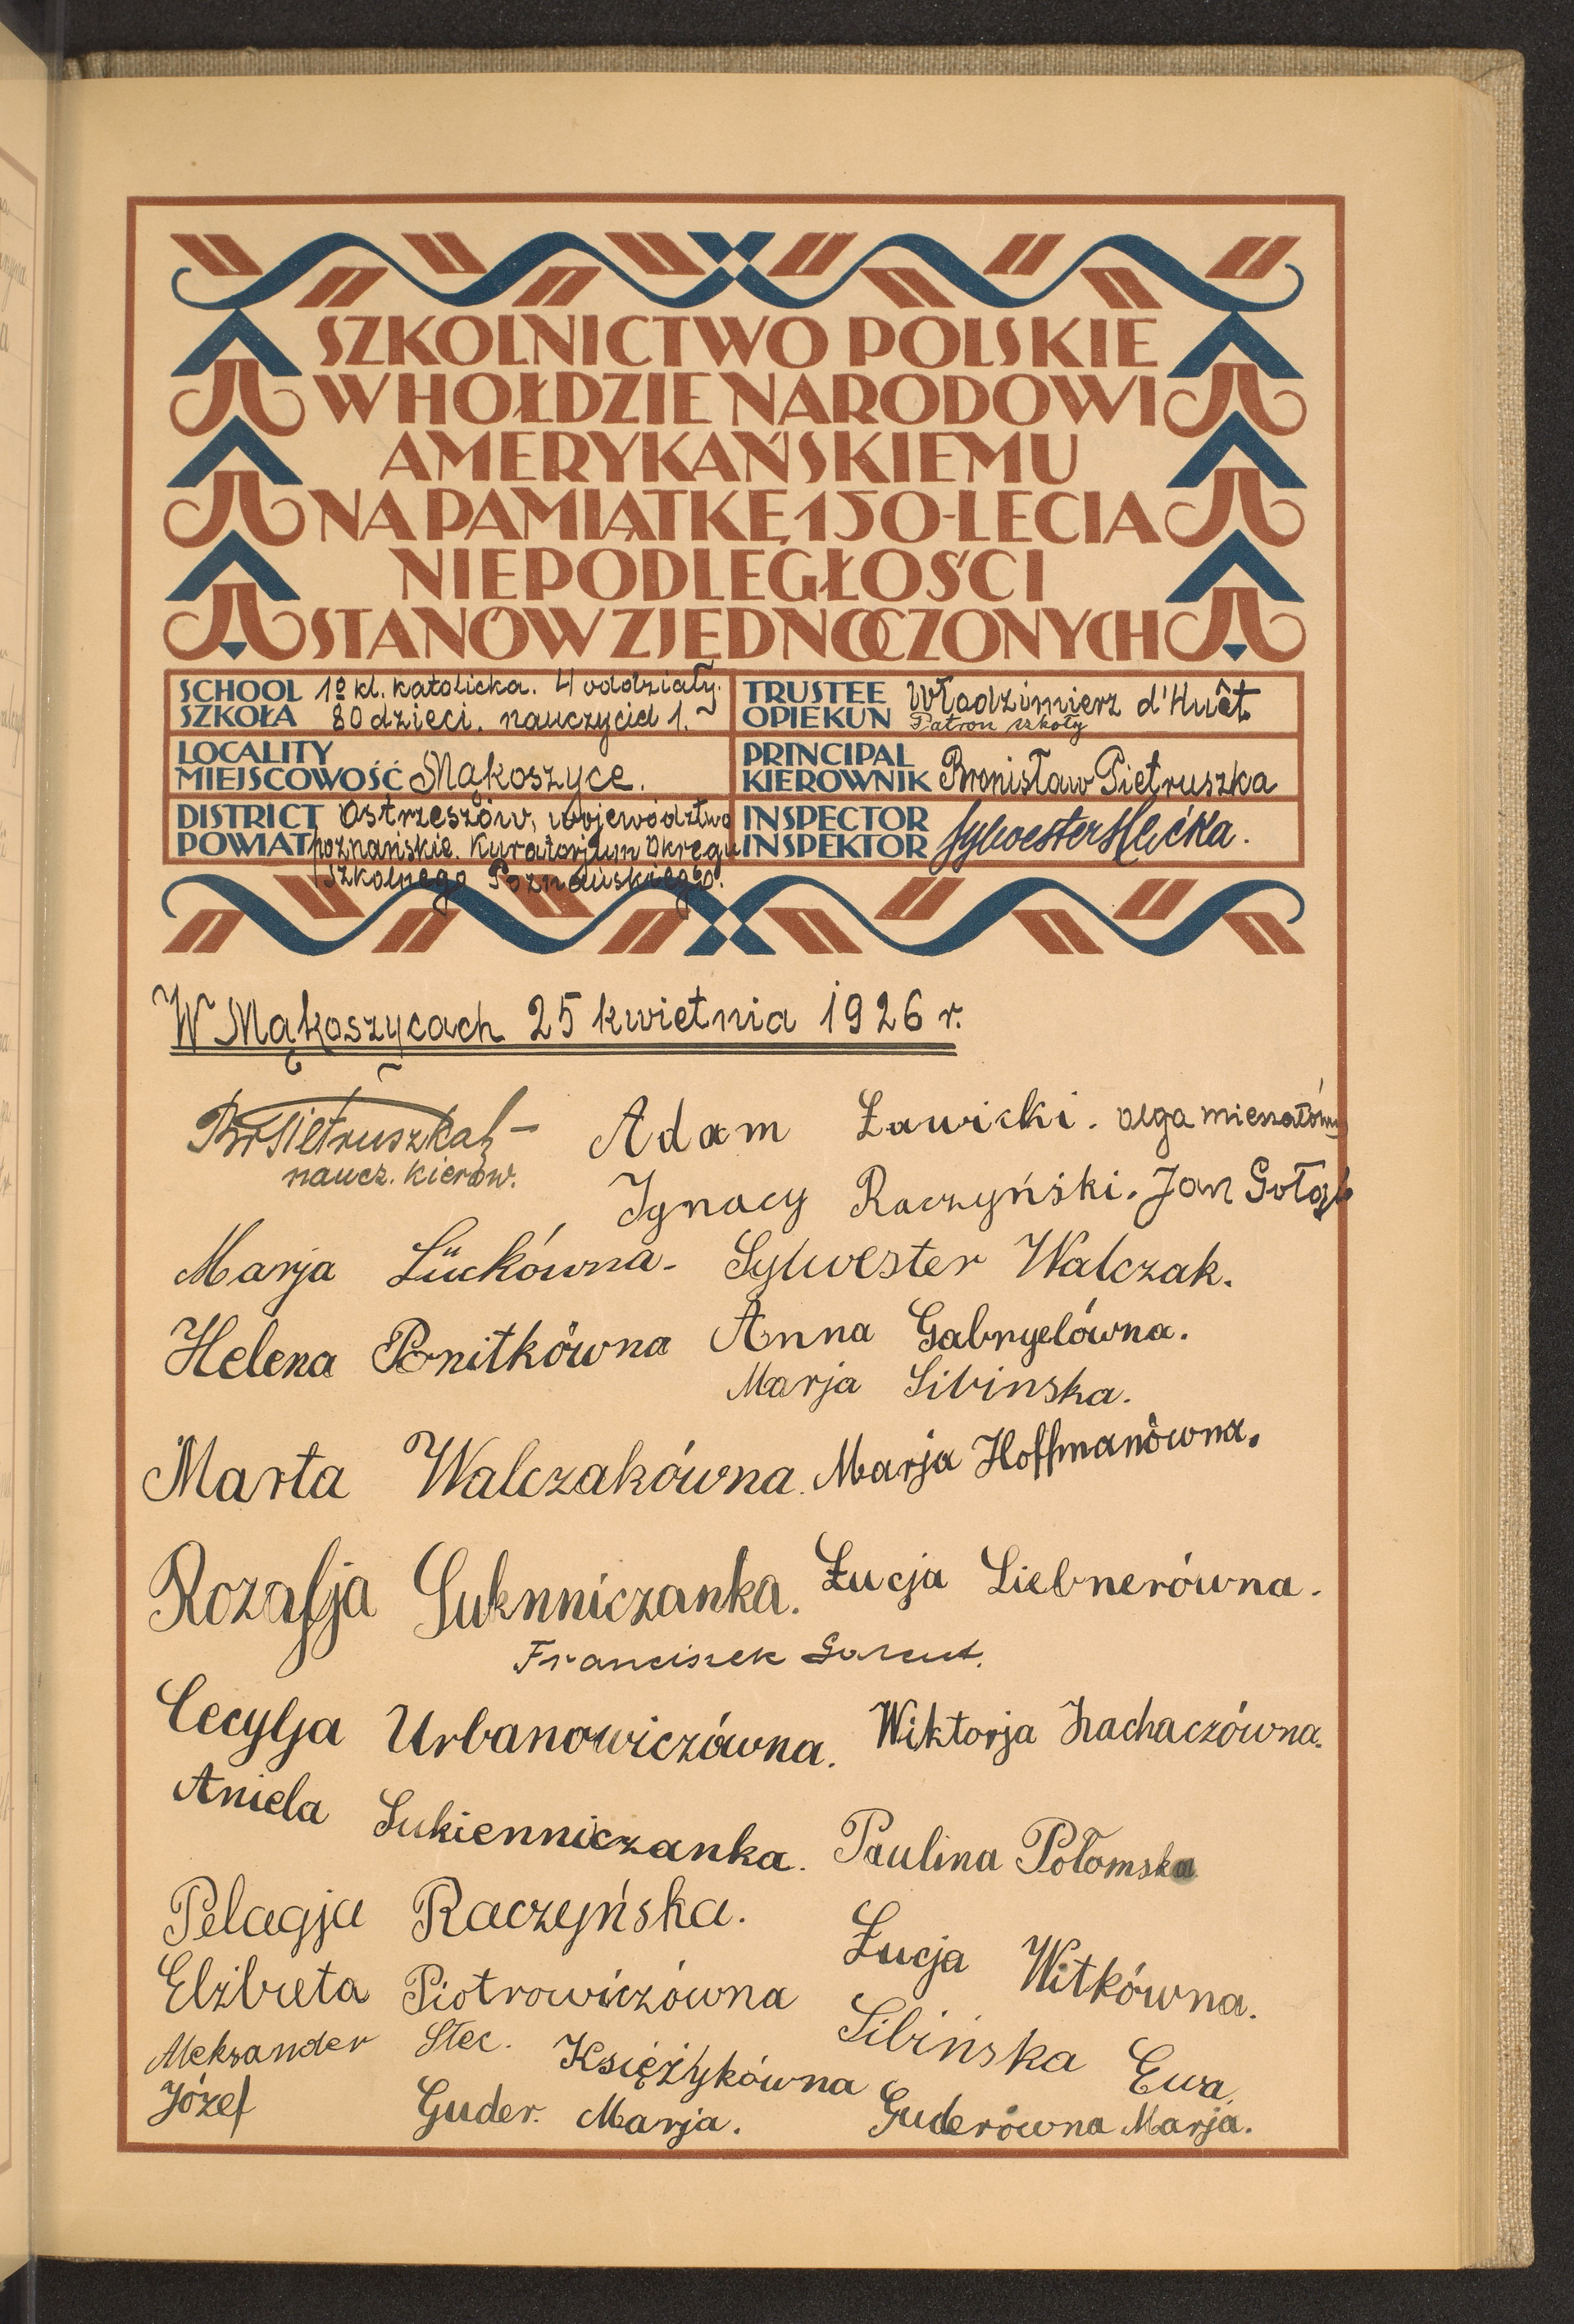 SZKOLNICTWO POLSKIE
W HOŁDZIE NARODOWI
AMERYKAŃSKIEMU
NA PAMIĄTKĘ 150-LECIA
NIEPODLEGŁOŚCI
STANÓW ZJEDNOCZONYCH
SCHOOL 1º kl. katolicka. 4 oddziały.
SZKOŁA 80 dzieci. nauczyciel 1.
TRUSTEE Włodzimierz d'Huêt
OPIEKUN Patron szkoły
LOCALITY
MIEJSCOWOŚĆ Mąkoszyce.
PRINCIPAL
KIEROWNIK Bronisław Pietruszka
DISTRICT Ostrzeszów, województwo
POWIAT poznańskie. Kuratorjum Okręgu
Szkolnego Poznańskiego.
INSPECTOR
INSPEKTOR Sylwester
W Mąkoszycach 25 kwietnia 1926 r.
Br Pietruszka
naucz. kierow.
Adam Ławicki. Olga
Ignacy Raczyński. Jan Gołąb
Marja Lückówna. Sylwester Walczak.
Helena Ponitkówna Anna Gabryelówna.
Marja Sibinska.
Marta Walczakówna. Marja Hoffmanówna.
Rozalja Suknniczanka. Łucja Liebnerówna.
Franciszek
Cecylja Urbanowiczówna. Wiktorja
Aniela Sukienniczanka. Paulina Połomska
Pelagja Raczyńska.
Łucja Witkówna.
Elżbieta Piotrowiczówna
Sibińska Ewa
Aleksander Stec. Księżykówna
Józef Guder. Marja. Guderówna Marja.